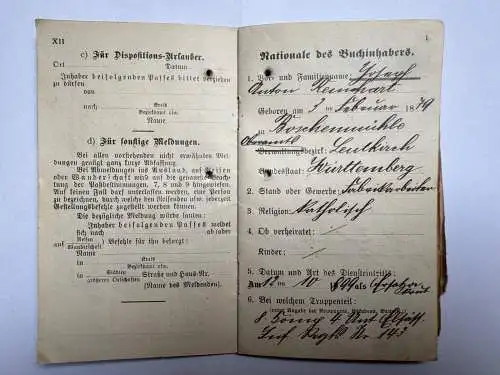 XII
c) Zür Dispositions-Urlauber.
Ort Datum
Inhaber beifolgenden Passes bittet verziehen
zu dürfen
von
nach Kreis
Bezirksamt etc.
Name
d) Zür sonstige Meldungen.
Bei allen vorherigen nicht erwähnten Meldungen
genügt ganz kurze Abfassung.
Bei Abmeldungen ins Ausland, auf Reisen
oder Wanderschaft wird auf die genaueste Beachtung
der Paßbestimmungen, 7, 8 und 9 hingewiesen. Auf
keinen Fall darf unterlassen werden, eine Person zu
bezeichnen, durch welche den Reisenden usw. jederzeit
Gestellungsbefehle zugestellt werden können.
Die bezügliche Meldung würde lauten:
Inhaber beifolgenden Passes meldet
sich nach ab und ersucht
auf Reisen
Wanderschaft Befehle für ihn besorgt:
Name
in Kreis
Bezirksamt etc.
in Städten
größeren Ortschaften Straße und Haus-Nr.
(Name des Meldenden)
1
Nationale des Buchinhabers.
1. Vor- und Familienname Joseph
Anton Reinhart
Geboren am 3 ten Februar 1879
in Boschenmühle
Oberamts
Verwaltungsbezirk: Leutkirch
Bundesstaat: Württemberg
2. Stand oder Gewerbe: Fabrikarbeiter
3. Religion: katholisch
4. Ob verheiratet:
Kinder:
5. Datum und Art des Diensteintritts:
Am 12 ten 10 1899 als Ersatz
6. Bei welchem Truppenteil:
(unter Angabe der Kompagnie, Eskadron, Batterie):
8 Komp 4 Unt Elsäss.
Inf Regts Nr 143